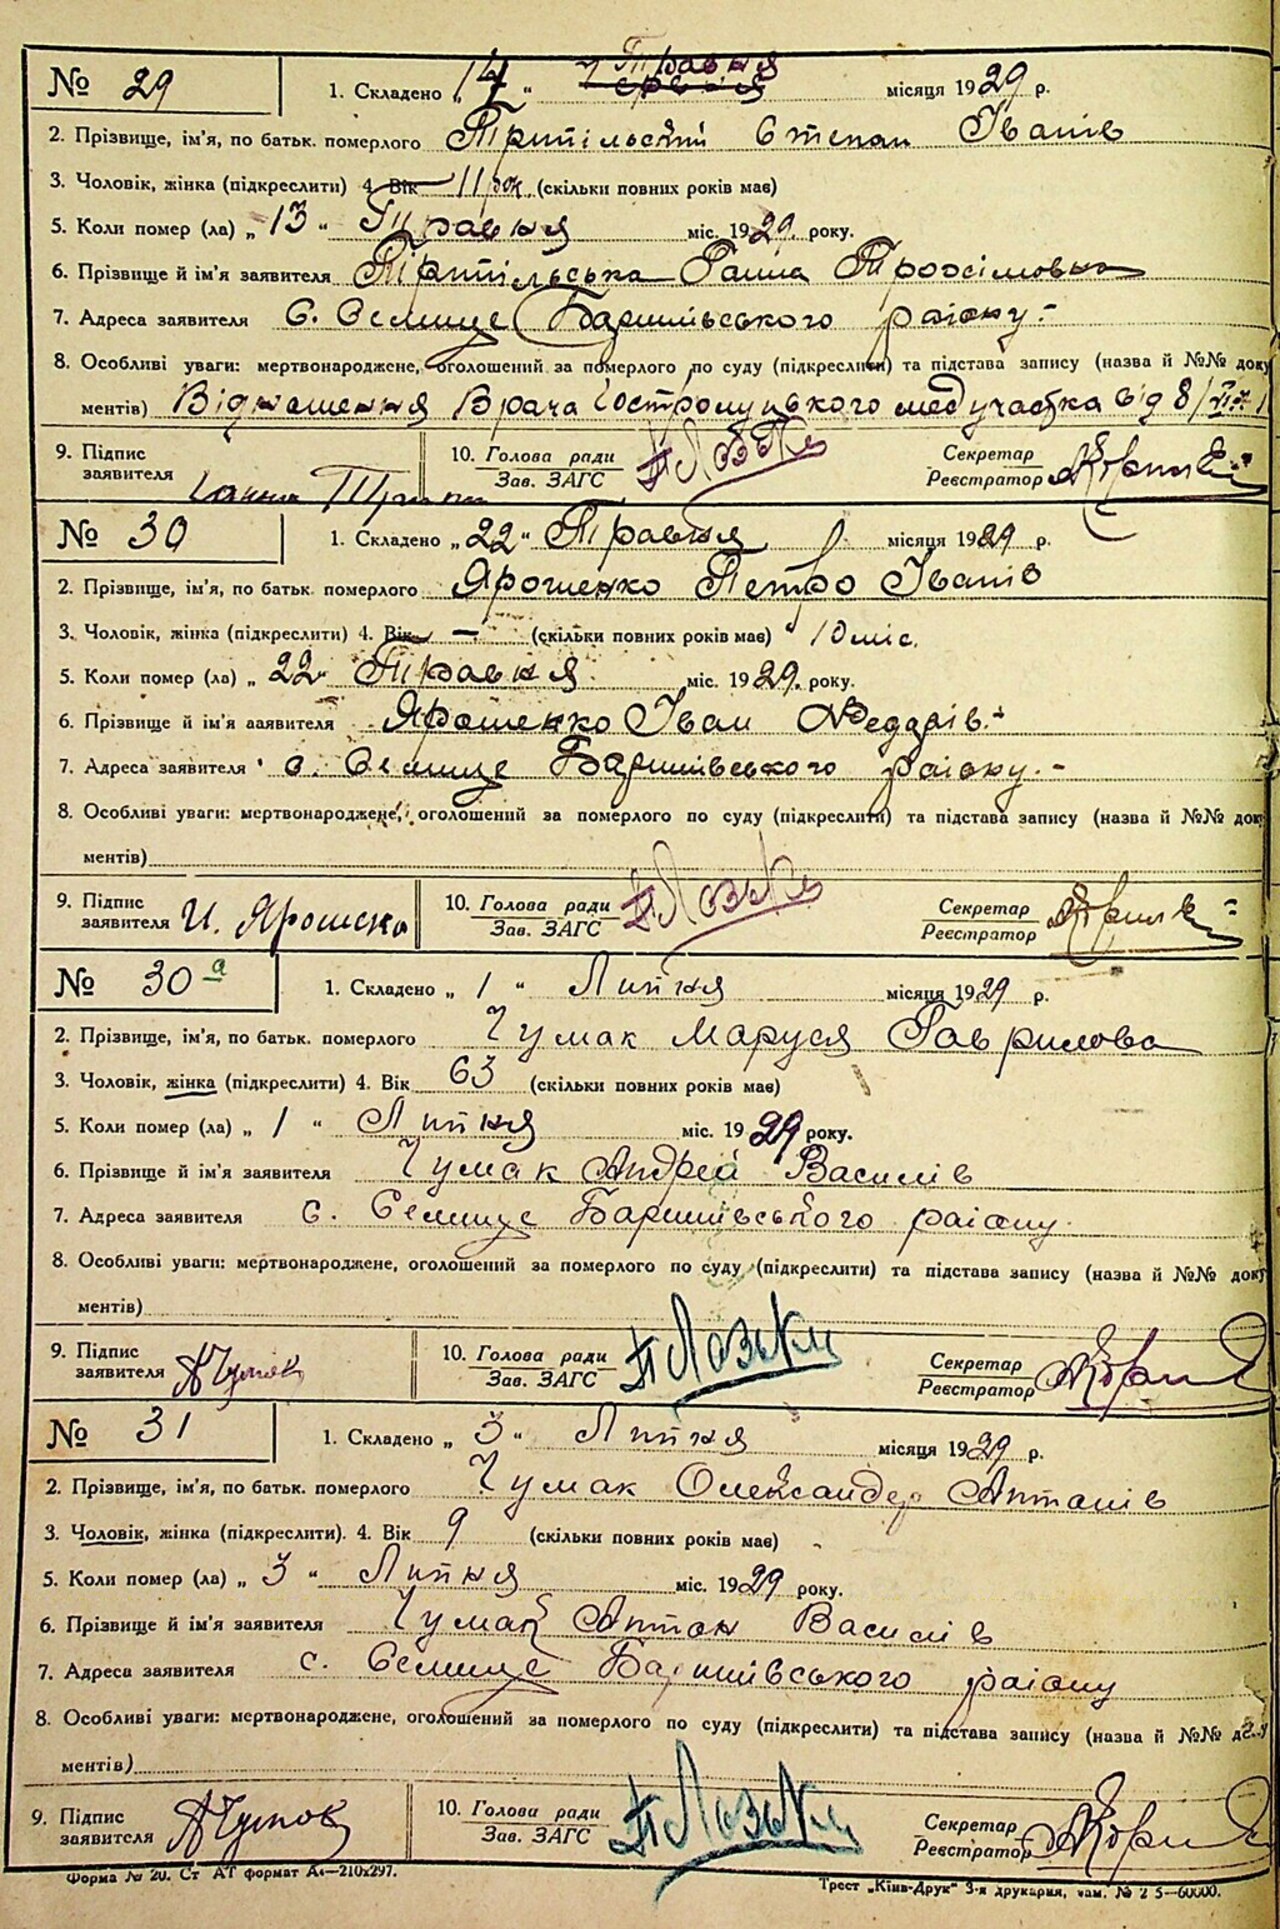 № 29 1. Складено „14“ Травня місяця 1929 р.
2. Прізвище, ім'я, по батьк. померлого Трипільский Степан Іванів
3. Чоловік, жінка (підкреслити) 4. Вік 11 рок. (скільки повних років має)
5. Коли помер (ла) „13“ Травня міс. 1929 року.
6. Прізвище й ім'я заявителя Трипільська Ганна Трохимовна
7. Адреса заявителя С. Селище Баришівського району.-
8. Особливі уваги: мертвонароджене, оголошений за померлого по суду (підкреслити) та підстава запису (назва й №№ доку
ментів) Відношення Врача Гостролуцького медучастка від 8/
9. Підпис заявителя Ганна 10. Голова ради Зав. ЗАГС Секретар Реєстратор
№ 30 1. Складено „22“ Травня місяця 1929 р.
2. Прізвище, ім'я, по батьк. померлого Ярошенко Петро Іванів
3. Чоловік, жінка (підкреслити) 4. Вік – (скільки повних років має) 10 міс.
5. Коли помер (ла) „22“ Травня міс. 1929 року.
6. Прізвище й ім'я заявителя Ярошенко Іван
7. Адреса заявителя с. Селище Баришівського району.-
8. Особливі уваги: мертвонароджене, оголошений за померлого по суду (підкреслити) та підстава запису (назва й №№ доку
ментів)
9. Підпис заявителя И. Ярошенко 10. Голова ради Зав. ЗАГС Секретар Реєстратор
№ 30а 1. Складено „1“ Липня місяця 1929 р.
2. Прізвище, ім'я, по батьк. померлого Чумак Маруся Гаврилова
3. Чоловік, жінка (підкреслити) 4. Вік 63 (скільки повних років має)
5. Коли помер (ла) „1“ Липня міс. 1929 року.
6. Прізвище й ім'я заявителя Чумак Андрей Василів
7. Адреса заявителя с. Селище Баришівського району.
8. Особливі уваги: мертвонароджене, оголошений за померлого по суду (підкреслити) та підстава запису (назва й №№ доку
ментів)
9. Підпис заявителя А Чумак 10. Голова ради Зав. ЗАГС Секретар Реєстратор
№ 31 1. Складено „3“ Липня місяця 1929 р.
2. Прізвище, ім'я, по батьк. померлого Чумак Олександер Антонів
3. Чоловік, жінка (підкреслити). 4. Вік 9 (скільки повних років має)
5. Коли помер (ла) „3“ Липня міс. 1929 року.
6. Прізвище й ім'я заявителя Чумак Антон Василів
7. Адреса заявителя с. Селище Баришівського району
8. Особливі уваги: мертвонароджене, оголошений за померлого по суду (підкреслити) та підстава запису (назва й №№ доку
ментів)
9. Підпис заявителя А Чумак 10. Голова ради Зав. ЗАГС Секретар Реєстратор
Форма № 20. Ст АТ формат А4—210x297.
Трест „Київ-Друк“ 3-я друкарня, зам. № 2 5—60000.